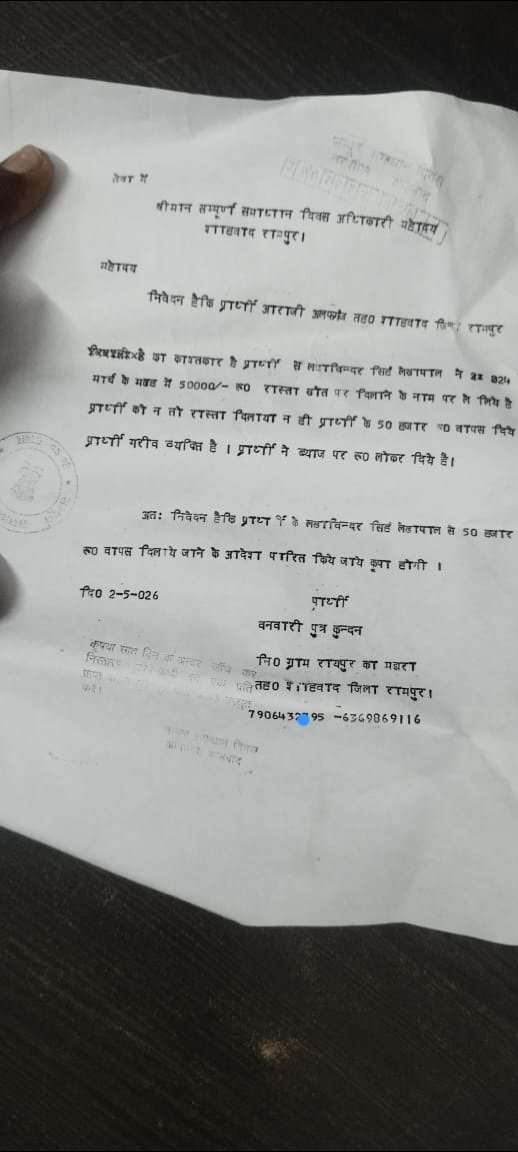 सेवा में
श्रीमान सम्पूर्ण समाधान दिवस अधिकारी महोदय
शाहबाद रामपुर।
महोदय
निवेदन हैकि प्रार्थी आराजी तह0 शाहबाद जिला रामपुर
का काश्तकार है प्रार्थी से लखविन्दर सिहं लेखपाल ने 024
मार्च के माह में 50000/- रू0 रास्ता खेत पर दिलाने के नाम पर ले लिये है
प्रार्थी को न तो रास्ता दिलाया न ही प्रार्थी के 50 हजार रू0 वापस दिये
प्रार्थी गरीव व्यक्ति है । प्रार्थी ने ब्याज पर रू0 लेकर दिये है।
अत: निवेदन हैकि प्रार्थी के लखविन्दर सिहं लेखपाल से 50 हजार
रू0 वापस दिलाये जाने के आदेश पारित किये जाये कृपा होगी ।
दि0 2-5-026
प्रार्थी
वनवारी पुत्र कुन्दन
नि0 ग्राम रायपुर का मझरा
तह0 शाहबाद जिला रामपुर।
-6369869116
कृपया सात दिन के अन्दर जाँच कर